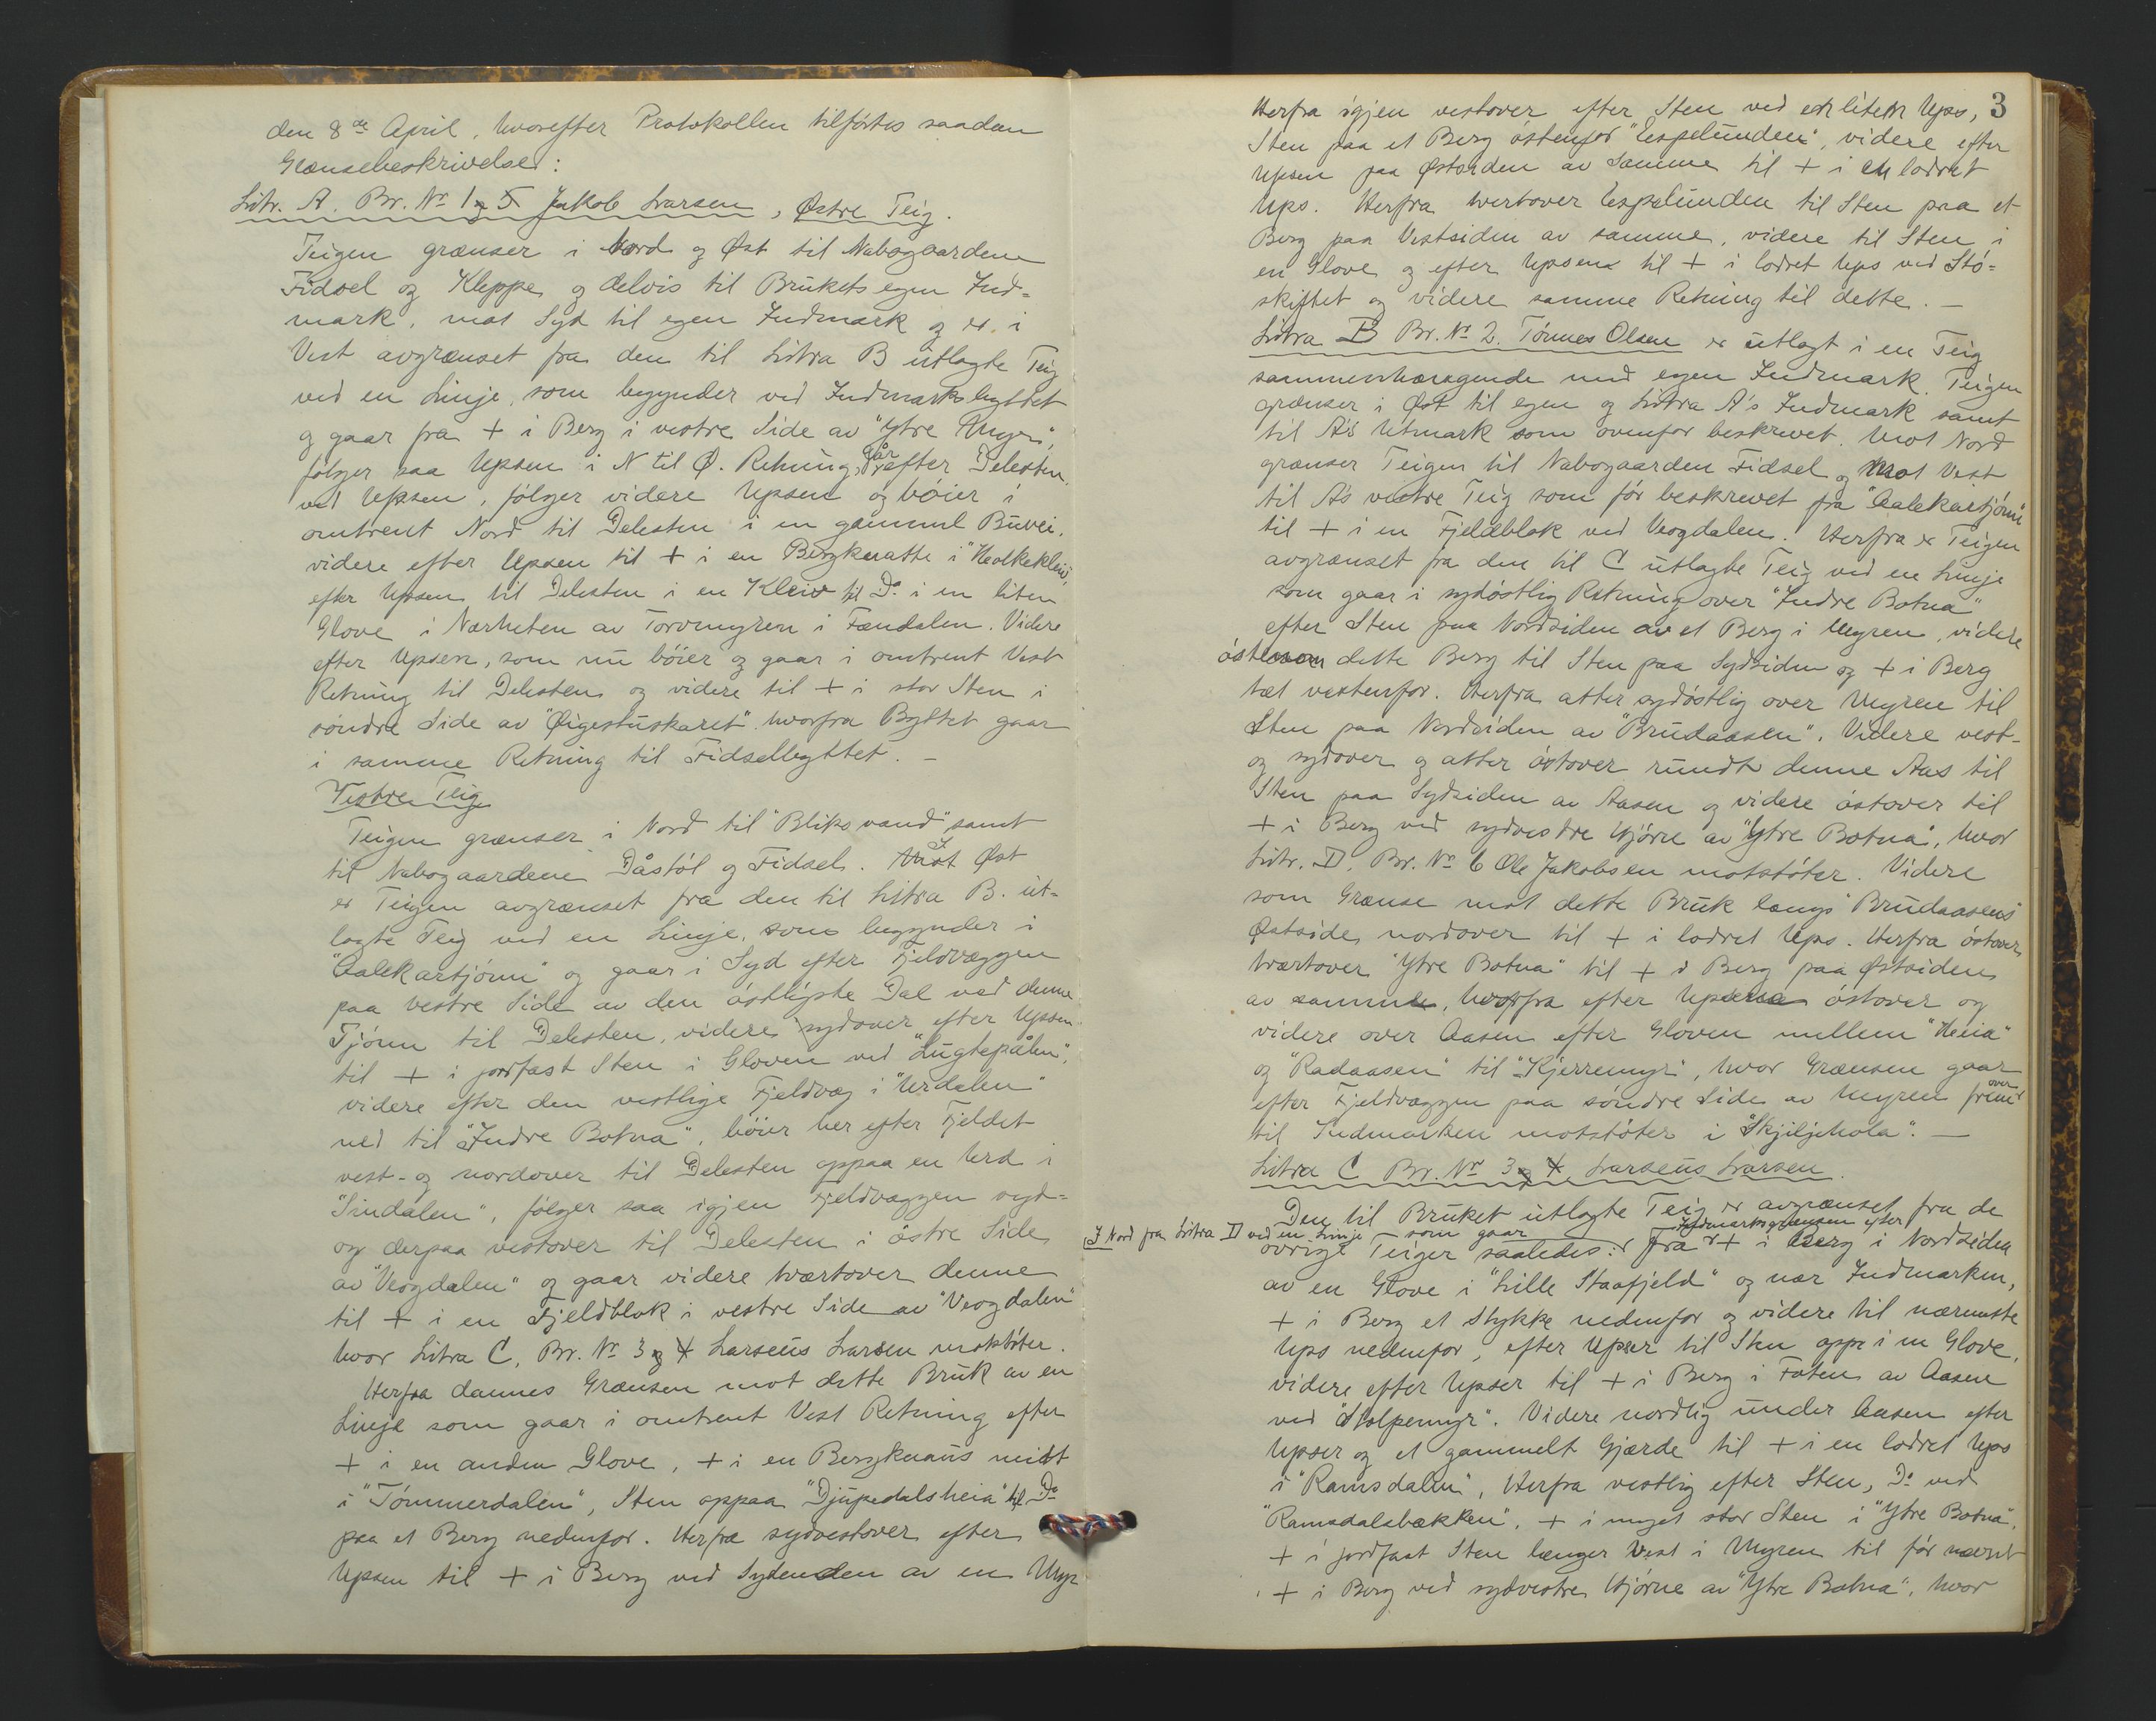 den 8de April, hvorefter Protokollen tilførtes saadan
Grænsebeskrivelse:
Litr. A. Br. No 1 og 5 Jakob Larsen, Østre Teig.
Teigen grænser i Nord og Øst til Nabogaardene
Fidsel og Kleppe og delvis til Brukets egen Ind-
mark, mot Syd til egen Indmark og er i
Vest avgrænset fra den til Litra B utlagte Teig
ved en Linje, som begynder ved Indmarksbyttet
og gaar fra + i Berg i vestre Side av "Ytre Myr",
følger saa Upsen i N til Ø. Retning går efter Delesten
ved Upsen, følger videre Upsen og bøier i
omtrent Nord til Delesten i en gammel Buvei,
videre efter Upsen til + i en Bergknatte i "Heolkekleiv",
efter Upsen til Delesten i en Kleiv til Do i en liten
Glove i Nærheten av Torvmyren i Fændalen. Videre
efter Upsen, som nu bøier og gaar i omtrent Vest
Retning til Delesten og videre til + i stor Sten i
søndre Side av "Øigestuskaret" hvorfra Byttet gaar
i samme Retning til Fidselbyttet. –
Vestre Teig
Teigen grænser i Nord til "Bliksvand" samt
til Nabogaardene Dåstøl og Fidsel. I Øst
er Teigen avgrænset fra den til Litra B. ut-
lagte Teig ved en Linje, som begynder i
"Aalekartjørn" og gaar i Syd efter Fjeldvæggen
paa vestre Side av den østligste Dal ved denne
Tjørn til Delesten, videre sydover efter Upsen
til + i jordfast Sten i Gloven ved "Lugtepålen",
videre efter den vestlige Fjeldvæg i "Urdalen"
ned til "Indre Botna", bøier her efter Fjeldet
vest- og nordover til Delesten oppaa en Urd i
"Sindalen", følger saa igjen Fjeldvæggen syd-
og derpaa vestover til Delesten i østre Side
av "Veogdalen" og gaar videre tvertover denne
til + i en Fjeldblok i vestre Side av "Veogdalen"
hvor Litra C, Br. No 3 og 4 Larseus Larsen motstøter.
Herfra dannes Grænsen mot dette Bruk av en
Linje som gaar i omtrent Vest Retning efter
+ i en anden Glove, + i en Bergknaus midt
i "Tømmerdalen", Sten oppaa "Djupedalsheia" til Do
paa et Berg nedenfor. Herfra sydvestover efter
Upsen til + i Berg ved Sydenden av en Myr
3
Herfra igjen vestover efter Sten ved en liten Ups,
Sten paa et Berg østenfor "Espelunden", videre efter
Upsen paa Østsiden av samme til + i en lodret
Ups. Herfra tvertover Espelunden til Sten paa et
Berg paa Vestsiden av samme, videre til Sten i
en Glove og efter Upsene til + i lodret Ups ved Stø-
skiftet og videre samme Retning til dette. –
Litra B Br. No 2. Tønnes Olsen er utlagt i en Teig
sammenhængende med egen Indmark. Teigen
grænser i Øst til egen og Litra A's Indmark samt
til A's Utmark som ovenfor beskrevet. Mot Nord
grænser Teigen til Nabogaarden Fidsel og mot Vest
til A's vestre Teig som før beskrevet fra "Aalekartjørn"
til + i en Fjeldblok ved Veogdalen. Herfra er Teigen
avgrænset fra den til C utlagte Teig ved en Linje
som gaar i sydøstlig Retning over "Indre Botna"
efter Sten paa Nordsiden av et Berg i Myren, videre
østenom dette Berg til Sten paa Sydsiden og + i Berg
tæt vestenfor. Herfra atter sydøstlig over Myren til
Sten paa Nordsiden av "Brudaasen". Videre vest-
og sydover og atter østover rundt denne Aas til
Sten paa Sydsiden av Aasen og videre østover til
+ i Berg ved sydvestre Hjørne av "Ytre Botna", hvor
Litr. D. Br. No 6 Ole Jakobsen motstøter. Videre
som Grænse mot dette Bruk langs "Brudaasens"
Østside nordover til + i lodret Ups. Herfra østover
tvertover "Ytre Botna" til + i Berg paa Østsiden
av samme, hvorfra efter Upserne østover og
videre over Aasen efter Gloven mellem "Heiia"
og "Radaasen" til "Kjerremyr", hvor Grænsen gaar
efter Fjeldvæggen paa søndre Side av Myren frem over
til Indmarken motstøter i "Skjiljehola". –
Litra C Br. No 3 og 4 Larseus Larsen.
Den til Bruket utlagte Teig er avgrænset fra de
I Nord fra Litra D ved en Linje som gaar Indmarksgrænsen efter
øvrige Teiger saaledes: fra + i Berg i Nordsiden
av en Glove i "Lille Staafjeld" og nær Indmarken,
+ i Berg et Stykke nedenfor og videre til nærmeste
Ups nedenfor, efter Upser til Sten oppe i en Glove,
videre efter Upser til + i Berg i Foten av Aasen
ved "Stolpemyr". Videre nordlig under Aasen efter
Upser og et gammelt Gjærde til + i en lodret Ups
i "Ramsdalen", Herfra vestlig efter Sten, Do ved
"Ramsdalsbækken", + i meget stor Sten i "Ytre Botna",
+ i jordfast Sten længer Vest i Myren til før nævnt
+ i Berg ved sydvestre Hjørne av "Ytre Botna", hvor